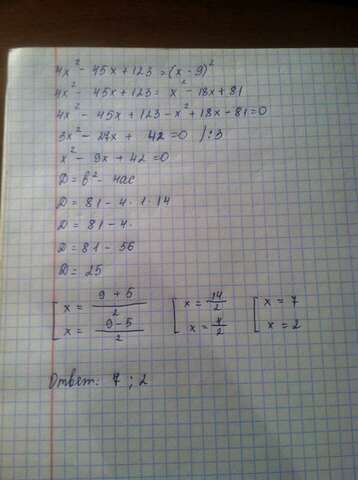 4x² - 45x + 123 = (x - 9)²
4x² - 45x + 123 = x² - 18x + 81
4x² - 45x + 123 - x² + 18x - 81 = 0
3x² - 27x + 42 = 0 /:3
x² - 9x + 42 = 0
D = b² - 4ac
D = 81 - 4 · 1 · 14
D = 81 - 4 ·
D = 81 - 56
D = 25
[ x = (9 + 5)/2 [ x = 14/2 [ x = 7
x = (9 - 5)/2 x = 4/2 x = 2
Ответ: 7 ; 2